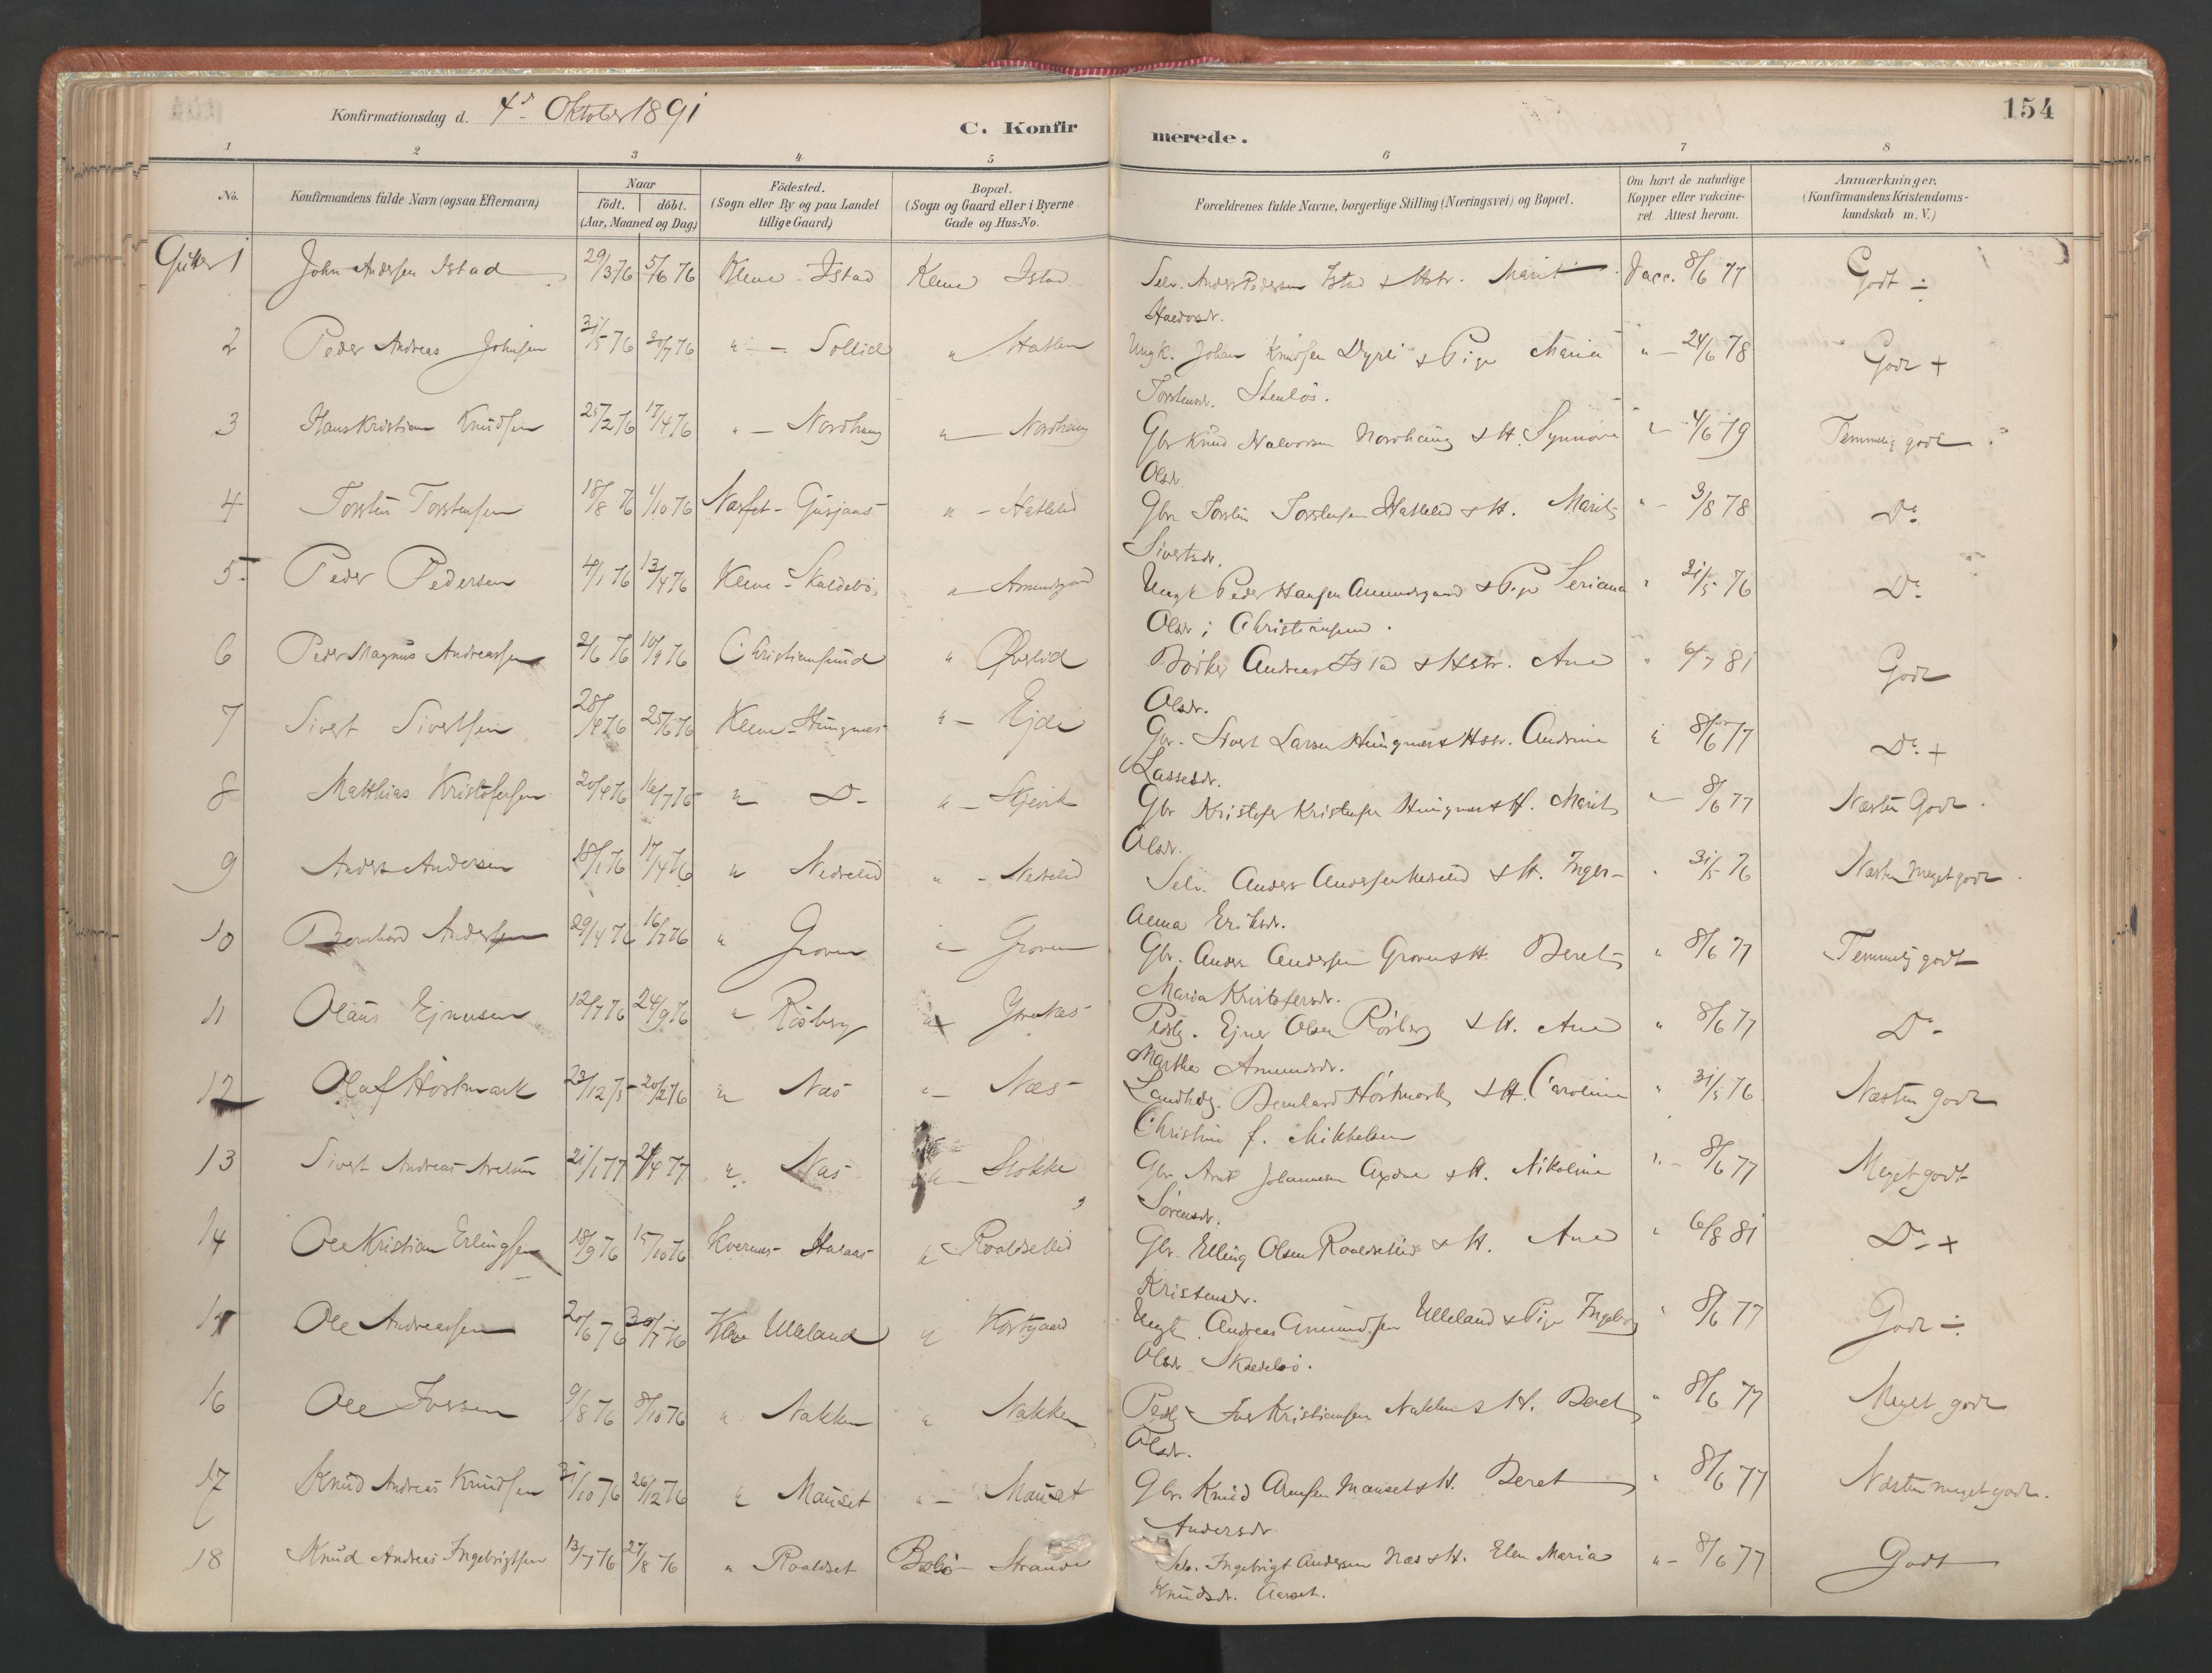 Konfirmationsdag d. 4de Oktober 1891
C. Konfirmerede.
154
1 2 3 4 5 6 7 8
No. Konfirmandens fulde Navn (ogsaa Efternavn) Naar födt. döbt. (Aar, Maaned og Dag) Födested. (Sogn eller By og paa Landet tillige Gaard) Bopæl. (Sogn og Gaard eller i Byerne Gade og Hus-No. Forældrenes fulde Navne, borgerlige Stilling (Næringsvei) og Bopæl. Om havt de naturlige Kopper eller vakcineret. Attest herom. Anmærkninger. (Konfirmandens Kristendomskundskab m. V.)
Gutter 1 John Andersen Istad 29/3 76 5/6 76 Kleve - Istad Kleve Istad Selv. Anders Pedersen Istad & Hstr. Marit Vacc. 8/6 77 Godt ÷
2 Peder Andreas Johnsen 31/5 76 30/7 76 " - Sollid " Hatlen Ungk. Johan Knudsen Dyrli & Pige Maria " - 24/6 78 Godt +
Torstensdr. Stenlös.
3 Hans Kristian Knudsen 25/2 76 17/4 76 " - Nordhaug " - Nordhaug Gbr Knud Halvorsen Nordhaug & H. Synnöve " - 4/6 79 Temmelig godt
Olsdr.
4 Torsten Torstensen 18/8 76 1/10 76 Næsset - Gusjaas " - Hatlelid Gbr Torsten Torstensen Hatlelid & H. Marit " - 3/8 78 Do.
Sivertsdr.
5 Peder Pedersen 4/1 76 13/4 76 Kleve - Skaldebö " - Amundgaard Ungk Peder Hansen Amundgaard & Pige Seriana " 21/5 76 Do.
Olsdr i Christiansund.
6 Peder Magnus Andreassen 2/6 76 10/9 76 Christiansund " Överlid Bödker Andreas Istad & Hstr. Ane " 6/7 81 Godt
Olsdr.
7 Sivert Sivertsen 28/4 76 25/6 76 Kleve - Hungnes " - Ejde Gbr. Sivert Larsen Hungnes & Hstr. Andrine " 8/6 77 Do. +
Lassesdr.
8 Matthias Kristofersen 20/4 76 16/7 76 " Do - " - Skjevik Gbr Kristofer Kristensen Hungnes & H. Marit " - 8/6 77 Næsten Godt.
Olsdr.
9 Anders Andersen 18/1 76 17/4 76 " Nedrelid " - Nedrelid Selv. Anders Andersen Nedrelid & H. Inger- " 31/5 76 Næsten meget godt.
Anna Eriksdr.
10 Bernhard Andersen 29/4 76 16/7 76 " Groven " - Groven Gbr. Anders Andersen Groven & H. Beret " 8/6 77 Temmelig godt
Maria Kristofersdr.
11 Olaus Ejnersen 12/7 76 24/9 76 " Rösberg Pldsg. Ejner Olsen Rösberg & H. Ane " 8/6 77 Do -
Martha Amundsdr.
12 Olaf Höstmark 23/12 75 20/2 76 " Næs " - Næs Landhdlg. Bernhard Höstmark & H. Caroline " 31/5 76 Næsten godt
Christine f. Mikkelsen
13 Sivert Andreas Arntsen 21/1 77 2/4 77 " Næs Stokke Gbr Arnt Johannesen & H. Nikoline " - 8/6 77 Meget godt
Sörensdr.
14 Ole Kristian Erlingsen 18/9 76 15/10 76 Kvernes - " Roaldsetlid Gbr. Elling Olsen Roaldsetlid & H. Ane " 6/8 81 Do - +
Kristensdr.
15 Ole Andreassen 20/6 76 30/7 76 Kleve Ulleland " Kortgaard Ungk. Andreas Amundsen Ulleland & Pige Ingeborg " 8/6 77 Godt ÷
Olsdr Skaldebö.
16 Ole Iversen 9/8 76 8/10 76 " Nakken " Nakken Pldsg - Iver Kristiansen Nakken & H. Beret " 8/6 77 Meget godt
Olsdr.
17 Knud Andreas Knudsen 31/10 76 26/12 76 " Mauset " - Mauset Gbr. Knud Arnesen Mauset & H. Beret " 8/6 77 Næsten meget godt.
Andersdr.
18 Knud Andreas Ingebrigtsen 13/7 76 27/8 76 " Roaldset Bolsö - Strande Selv. Ingebrigt Andersen Næs & H. Elen Maria " - 8/6 77 Godt
Knudsdr. Aarset.